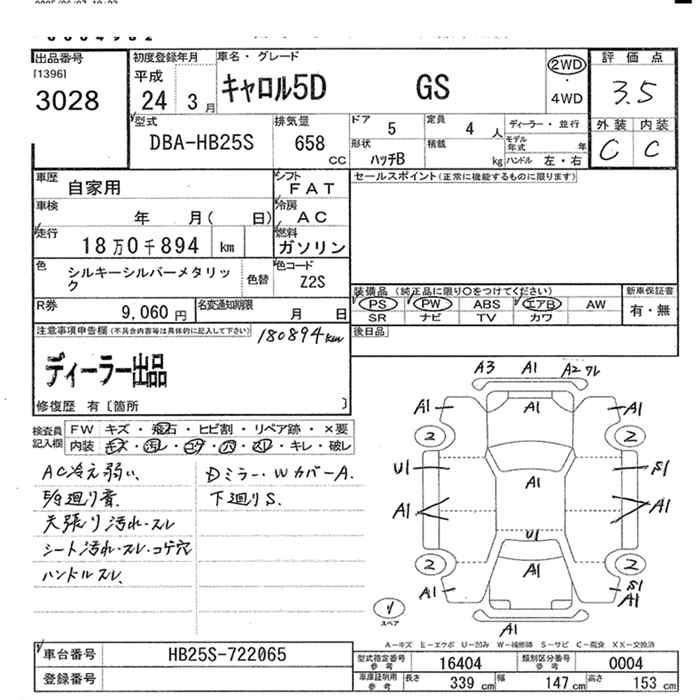 出品番号
[1396]
3028
初度登録年月
平成
24 3月
車名・グレード
キャロル5D GS
2WD
・
4WD
評価点
3.5
外装 内装
C C
型式
DBA-HB25S
排気量
658
CC
ドア 5
定員 4 人
ディーラー・並行
形状
ハッチB
積載 kg
モデル年式 年
ハンドル 左・右
車歴 自家用
シフト
FAT
セールスポイント(正常に機能するものに限ります)
車検 年 月( 日)
冷房
AC
走行 18万0千894 km
燃料
ガソリン
色 シルキーシルバーメタリック
色替
色コード
Z2S
装備品(純正品に限り○をつけてください)
新車保証書
PS PW ABS エアB AW
有・無
SR ナビ TV カワ
R券 9,060円
名変通知期限 月 日
後日品
注意事項申告欄(不具合内容等は具体的に記入して下さい)
180894km
ディーラー出品
修復歴 有〔箇所 〕
検査員記入欄
FW キズ・飛石・ヒビ割・リペア跡・×要
内装 キズ・汚レ・コゲ・穴・スレ・キレ・破レ
AC冷え弱い、 Dミラー・WカバーA.
下廻りS.
天張り汚れ・スレ
シート汚れ・スレ・コゲ穴
ハンドルスレ
A3 A1 A2 ワレ
A1 A1 A1
2 2
U1 S1
A1 A1 A1
U1
2 A1 2
A1 S1
A1
A1
スペア
A-キズ E-エクボ U-凹み W-補修跡 S-サビ C-腐食 XX-交換済
車台番号 HB25S-722065
登録番号
型式指定番号
参考
16404
類別区分番号
参考
0004
車庫証明用
参考
長さ 339 cm 幅 147 cm 高さ 153 cm